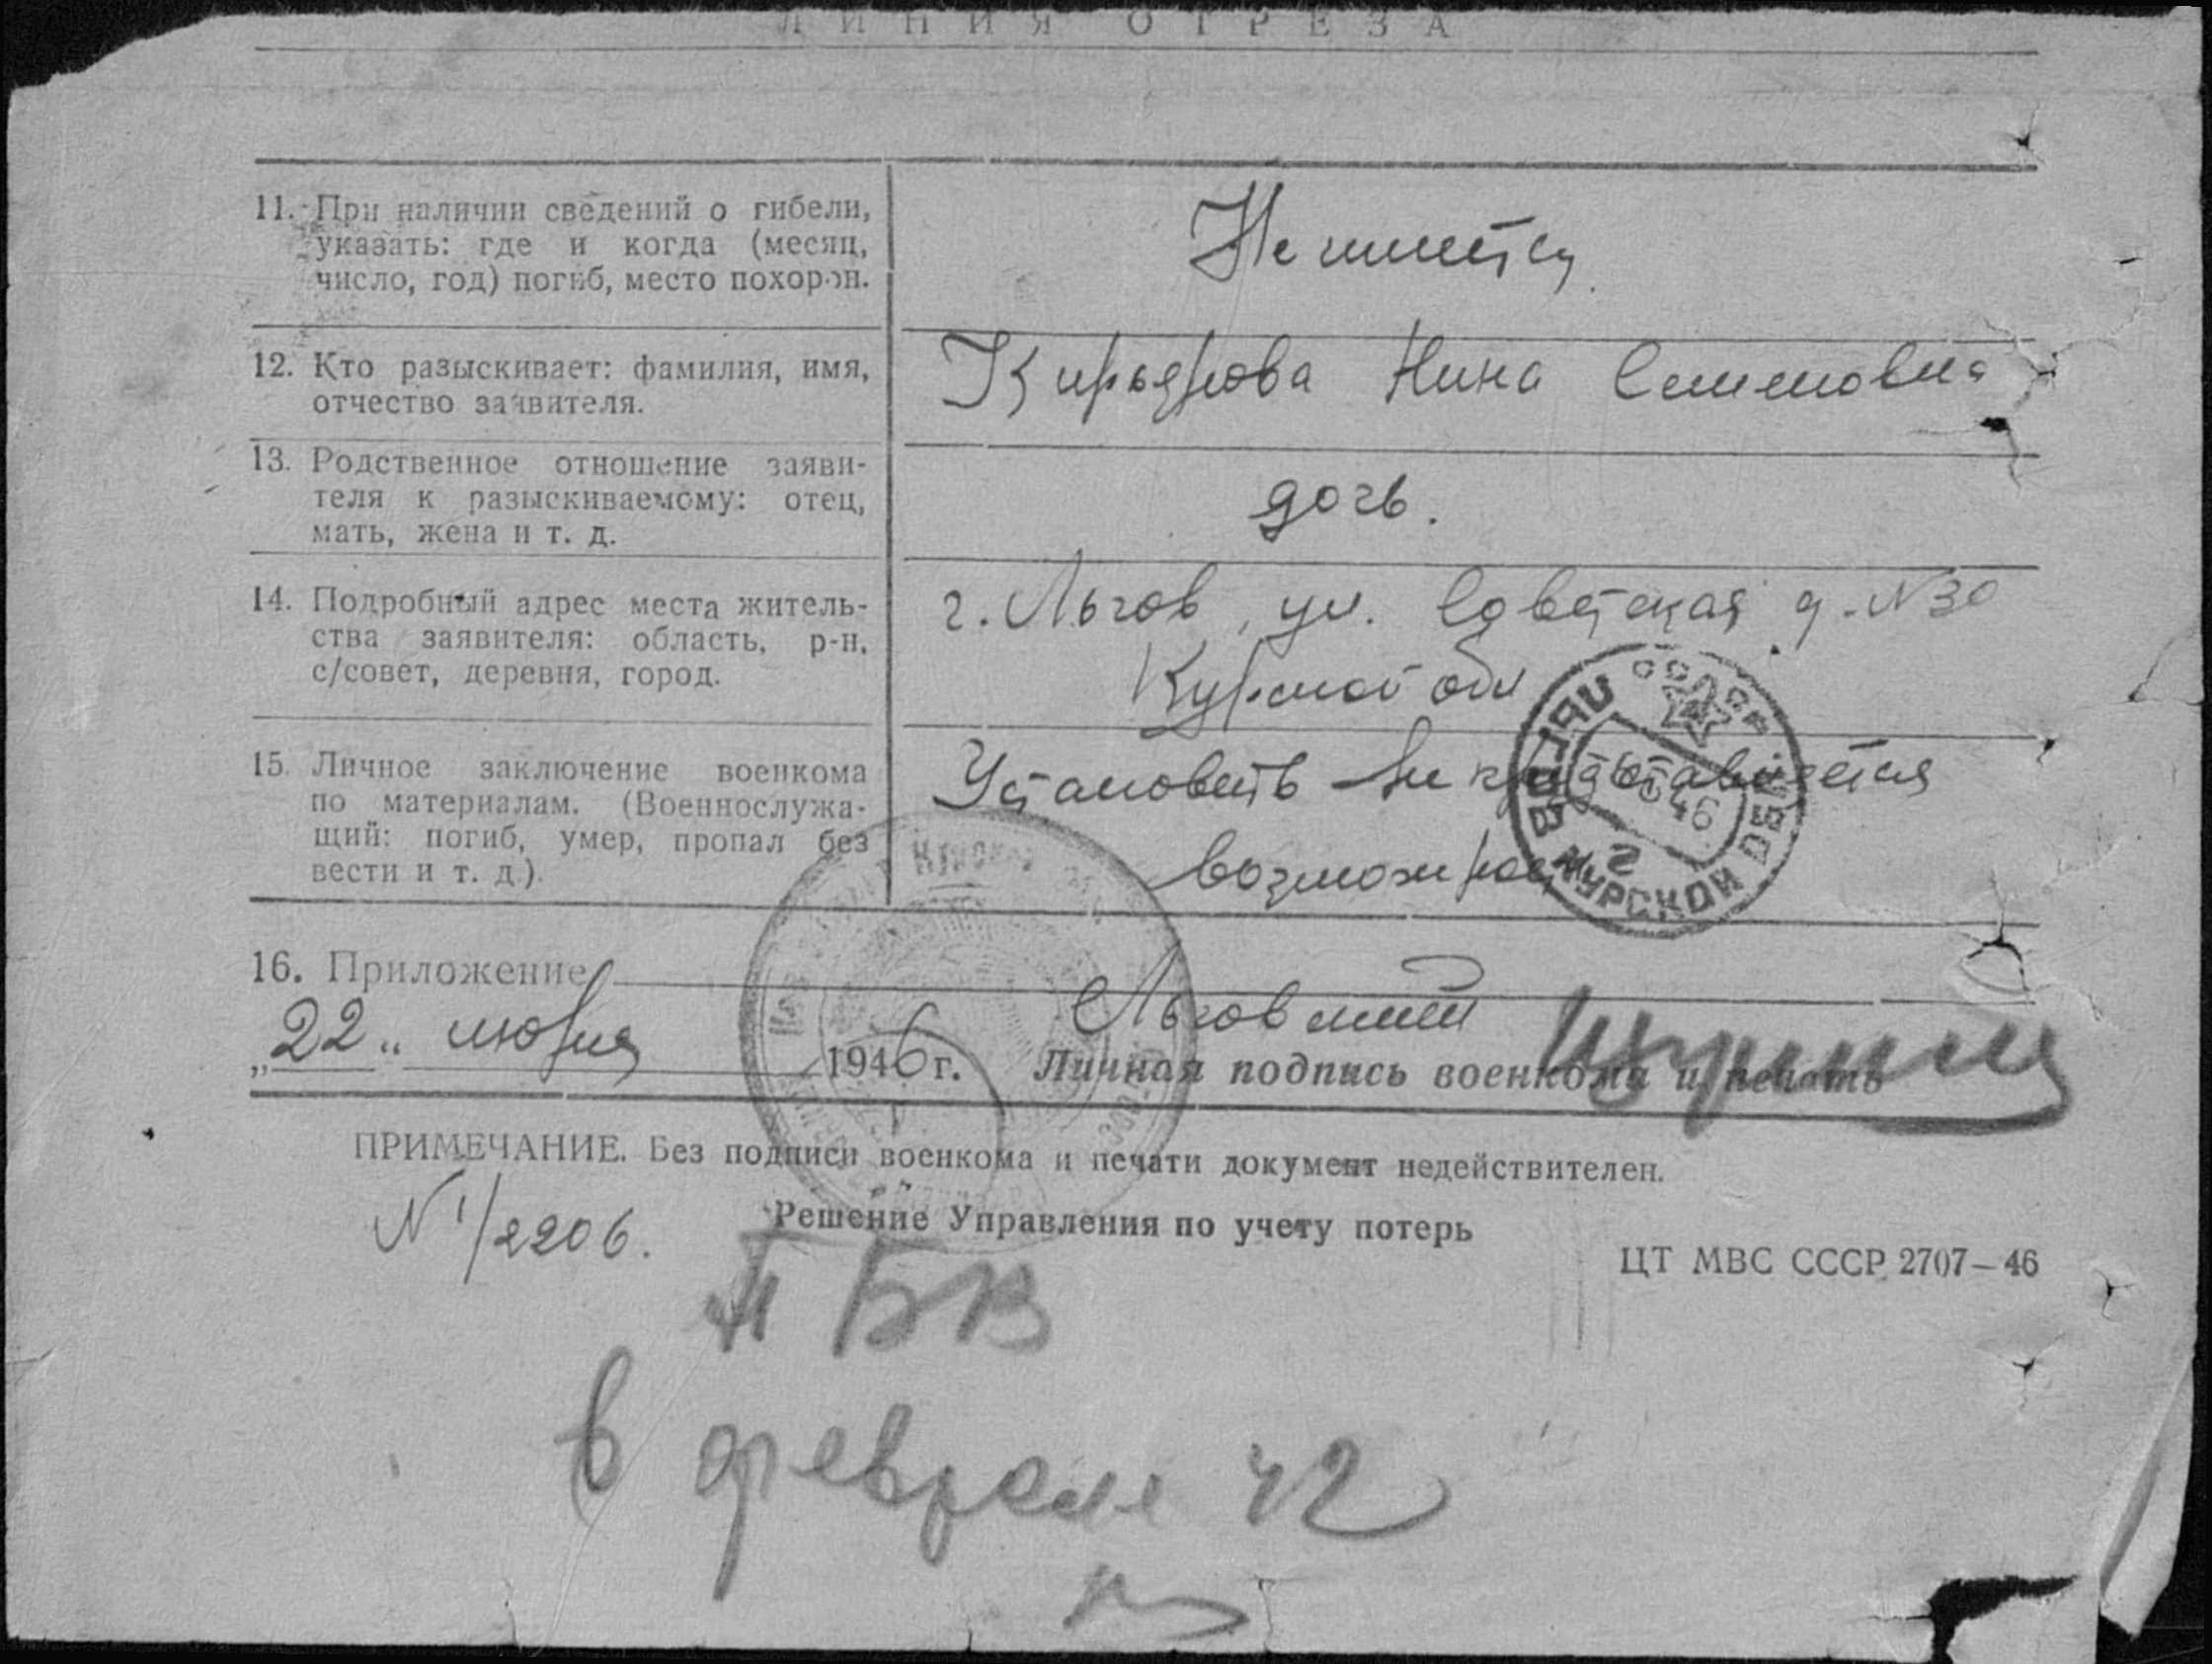 ЛИНИЯ ОТРЕЗА
11. При наличии сведений о гибели,
указать: где и когда (месяц,
число, год) погиб, место похорон.
Не имеется
12. Кто разыскивает: фамилия, имя,
отчество заявителя.
Кирьянова Нина Семеновна
13. Родственное отношение заяви-
теля к разыскиваемому: отец,
мать, жена и т. д.
дочь.
14. Подробный адрес места житель-
ства заявителя: область, р-н,
с/совет, деревня, город.
г. Льгов, ул. Советская д. №30
Курской обл
15. Личное заключение военкома
по материалам. (Военнослужа-
щий: погиб, умер, пропал без
вести и т. д.).
Установить не представляется
возможным
ЛЬГОВ КУРСКОЙ ОБЛ
46
16. Приложение
„22" июня 1946 г.
Льговский
Личная подпись военкома и печать
ПРИМЕЧАНИЕ. Без подписи военкома и печати документ недействителен.
N 1/2206.
Решение Управления по учету потерь
ЦТ МВС СССР 2707—46
П БВ
в феврале 42